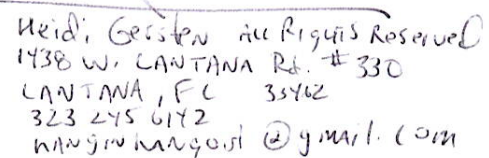 Heidi Gersten All Rights Reserved
1438 W. LANTANA Rd. # 330
LANTANA, FL 33462
323 245 6142
@gmail.com